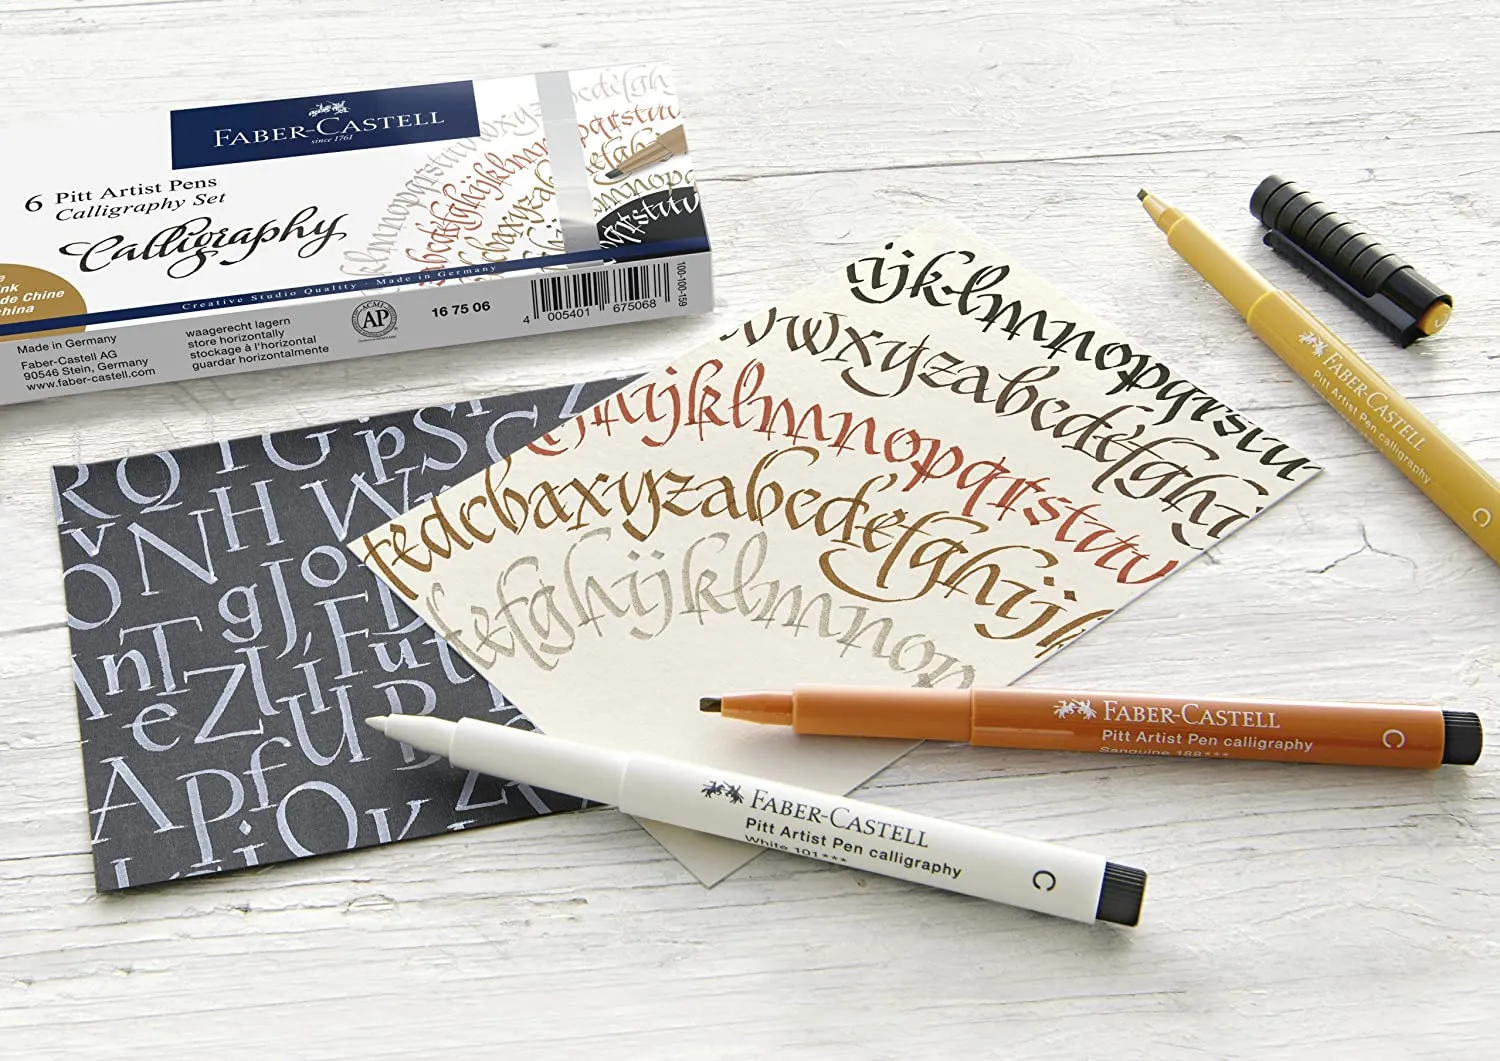 FABER-CASTELL
since 1761
6 Pitt Artist Pens
Calligraphy Set
Calligraphy
ink
de Chine
china
Creative Studio Quality · Made in Germany
Made in Germany
Faber-Castell AG
90546 Stein, Germany
www.faber-castell.com
waagerecht lagern
store horizontally
stockage à l'horizontal
guardar horizontalmente
ACMI
AP
16 75 06
4 005401 675068
100-100-159
ijklmnopqrstu
wxyzabcdefghi
hijklmnopqrstuv
tedcbaxyzabcdefghijk
defghijklmno
FABER-CASTELL
Pitt Artist Pen calligraphy
C
C
FABER-CASTELL
Pitt Artist Pen calligraphy
Sanguine 188***
C
FABER-CASTELL
Pitt Artist Pen calligraphy
White 101***
C